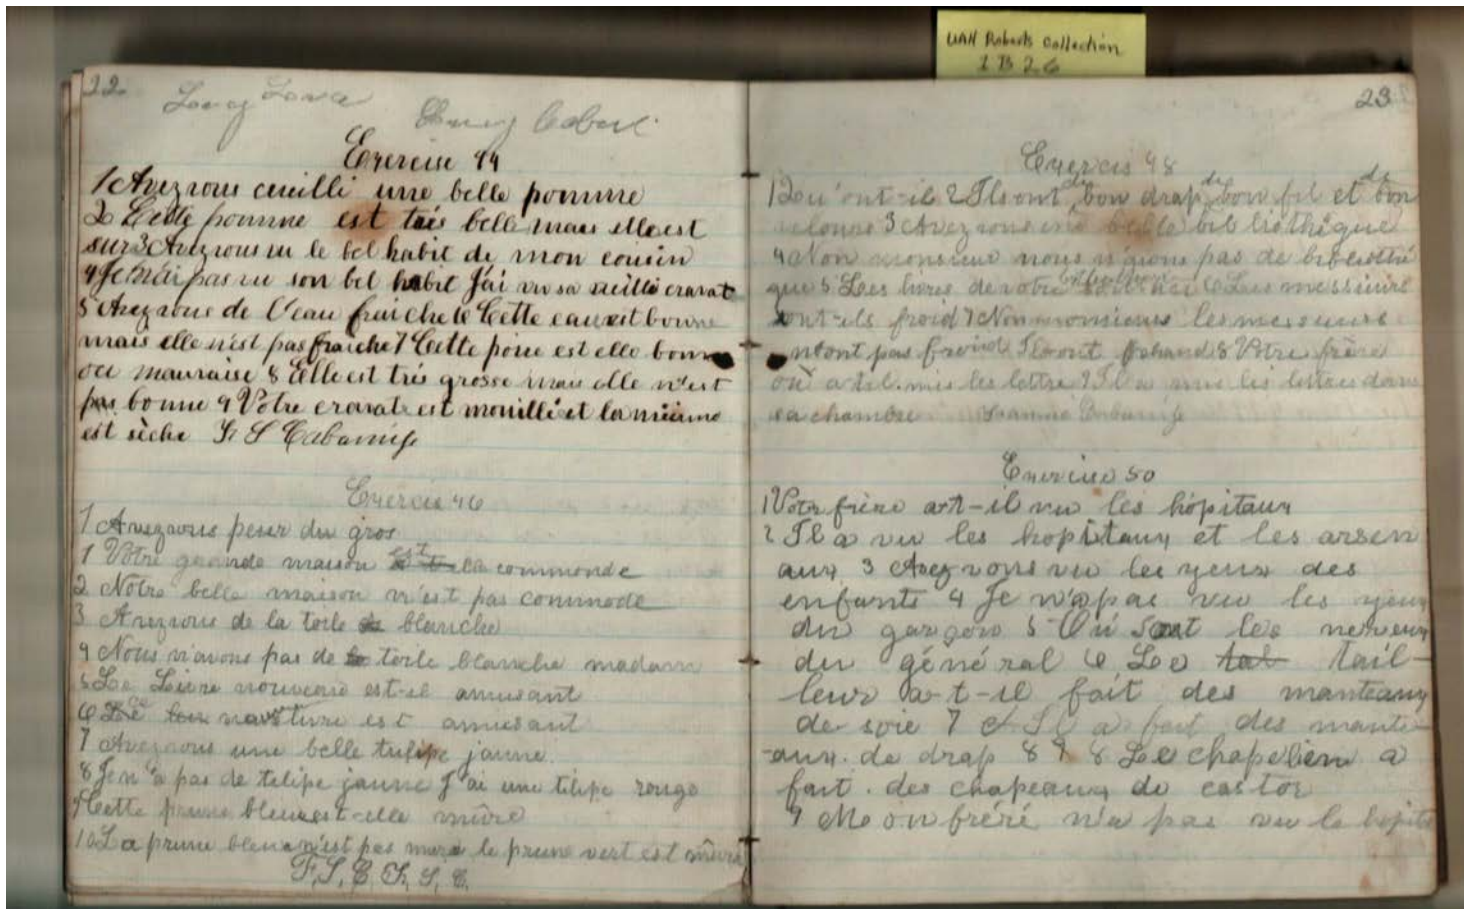 UAH Roberts Collection
1 B 26
22
Exercise 44
1 Avez vous cueilli une belle pomme
2 Cette pomme est trés belle mais elle est
sur 3 Avez vous vu le bel habit de mon cousin
4 Je n'ai pas vu son bel habit J'ai vu sa vieille cravat
5 Avez vous de l'eau fraiche 6 Cette eau est bonne
mais elle n'est pas fraiche 7 Cette poire est elle bonne
ou mauvaise 8 Elle est trés grosse mais elle n'est
pas bonne 9 Votre cravate est mouillé et la mienne
est sèche
Exercis 46
1 Avez vous peur du gros
1 Votre grande maison est la commonde
2 Notre belle maison n'est pas commode
3 Avez vous de la toile blanche
4 Nous n'avons pas de toile blanche madam
5 Le Livre nouveau est-il amusant
6 est amusant
7 Avez vous une belle tulipe jaune
8 Je n'a pas de telipe jaune J'ai une tilipe rouge
9 Cette prune bleue est-elle mûre
10 La prune bleue n'est pas mure le prune vert est mûre
F. S. C. F. S. C.
23
Exercis 48
1 Qu'ont-il 2 Ils ont de bon drap de bon fil et de bon
velours 3 Avez vous une belle bibliothêque
4 Non monsieur nous n'avons pas de bibliothé
que 5 Les livres de votre 6 Les messieurs
ont-ils froid 7 Non monsieur les messieurs
n'ont pas froid Ils ont chaud 8 Votre frère
où a til mis les lettre 9 Il a mis les lettres dans
sa chambre
Exercise 50
1 Votre frère a-t-il vu les hôpitaux
2 Il a vu les hopitaux et les arsen
aux 3 Avez vous vu les yeux des
enfants 4 Je n'a pas vu les yeux
du garçon 5 Où sont les neveux
du général 6 Le tal tail-
leur a-t-il fait des manteaux
de soie 7 Il a fait des mante-
-aux de drap 8 9 8 Le chapelien a
fait des chapeaux de castor
9 Mon fréré n'a pas vu le hopita